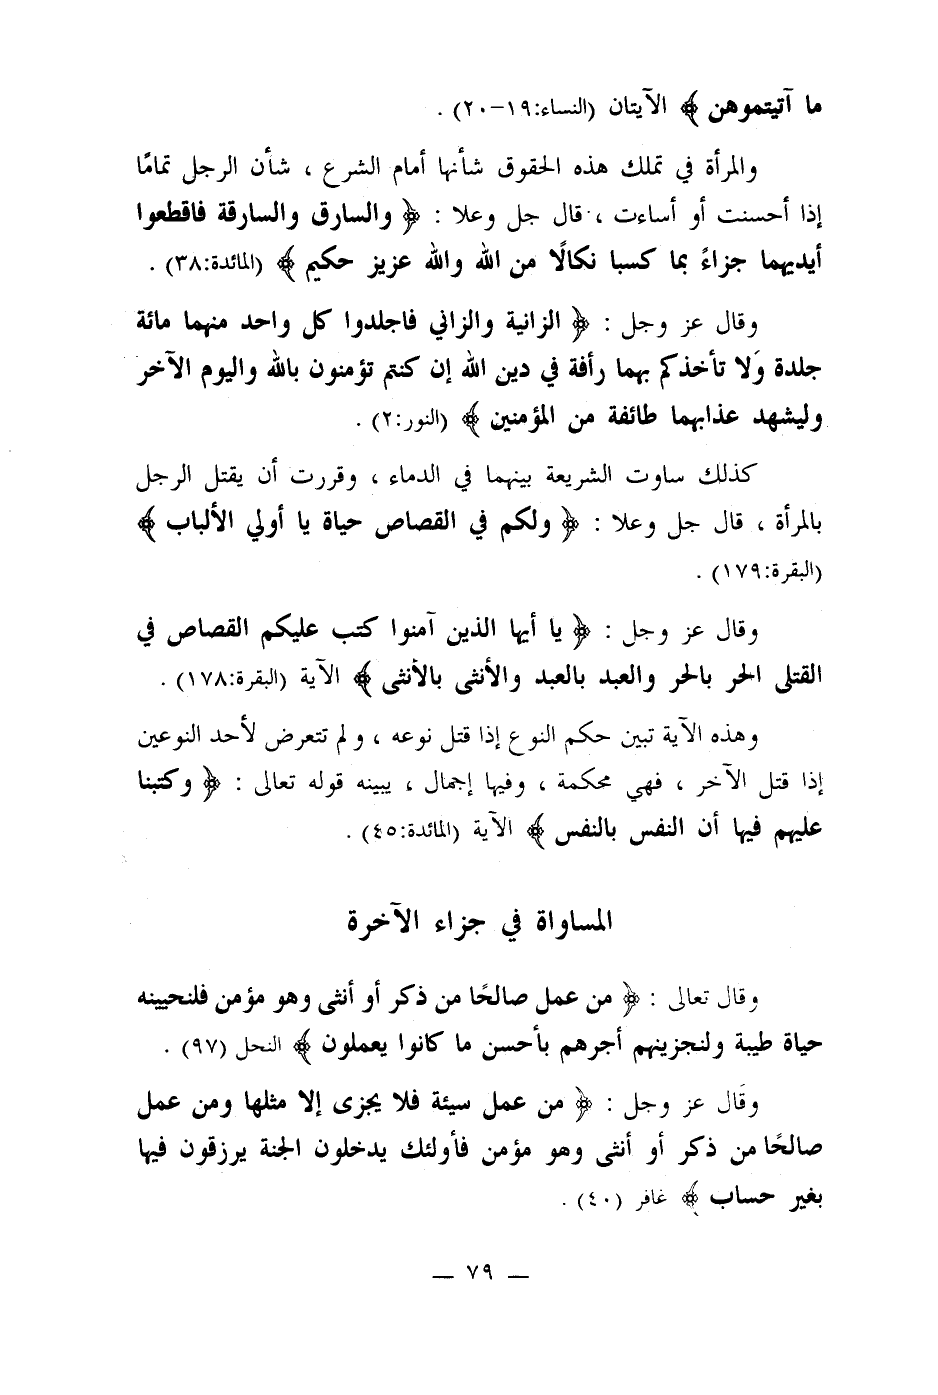 ما آتيتموهن ﴾ الآيتان (النساء:١٩-٢٠) .
والمرأة في تملك هذه الحقوق شأنها أمام الشرع ، شأن الرجل تمامًا
إذا أحسنت أو أساءت ، قال جل وعلا : ﴿ والسارق والسارقة فاقطعوا
أيديهما جزاءً بما كسبا نكالًا من الله والله عزيز حكيم ﴾ (المائدة:٣٨) .
وقال عز وجل : ﴿ الزانية والزاني فاجلدوا كل واحد منهما مائة
جلدة وَلا تأخذكم بهما رأفة في دين الله إن كنتم تؤمنون بالله واليوم الآخر
وليشهد عذابهما طائفة من المؤمنين ﴾ (النور:٢) .
كذلك ساوت الشريعة بينهما في الدماء ، وقررت أن يقتل الرجل
بالمرأة ، قال جل وعلا : ﴿ ولكم في القصاص حياة يا أولي الألباب ﴾
(البقرة:١٧٩) .
وقال عز وجل : ﴿ يا أيها الذين آمنوا كتب عليكم القصاص في
القتلى الحر بالحر والعبد بالعبد والأنثى بالأنثى ﴾ الآية (البقرة:١٧٨) .
وهذه الآية تبين حكم النوع إذا قتل نوعه ، ولم تتعرض لأحد النوعين
إذا قتل الآخر ، فهي محكمة ، وفيها إجمال ، يبينه قوله تعالى : ﴿ وكتبنا
عليهم فيها أن النفس بالنفس ﴾ الآية (المائدة:٤٥) .
المساواة في جزاء الآخرة
وقال تعالى : ﴿ من عمل صالحًا من ذكر أو أنثى وهو مؤمن فلنحيينه
حياة طيبة ولنجزينهم أجرهم بأحسن ما كانوا يعملون ﴾ النحل (٩٧) .
وقَال عز وجل : ﴿ من عمل سيئة فلا يجزى إلا مثلها ومن عمل
صالحًا من ذكر أو أنثى وهو مؤمن فأولئك يدخلون الجنة يرزقون فيها
بغير حساب ﴾ غافر (٤٠) .
— ٧٩ —